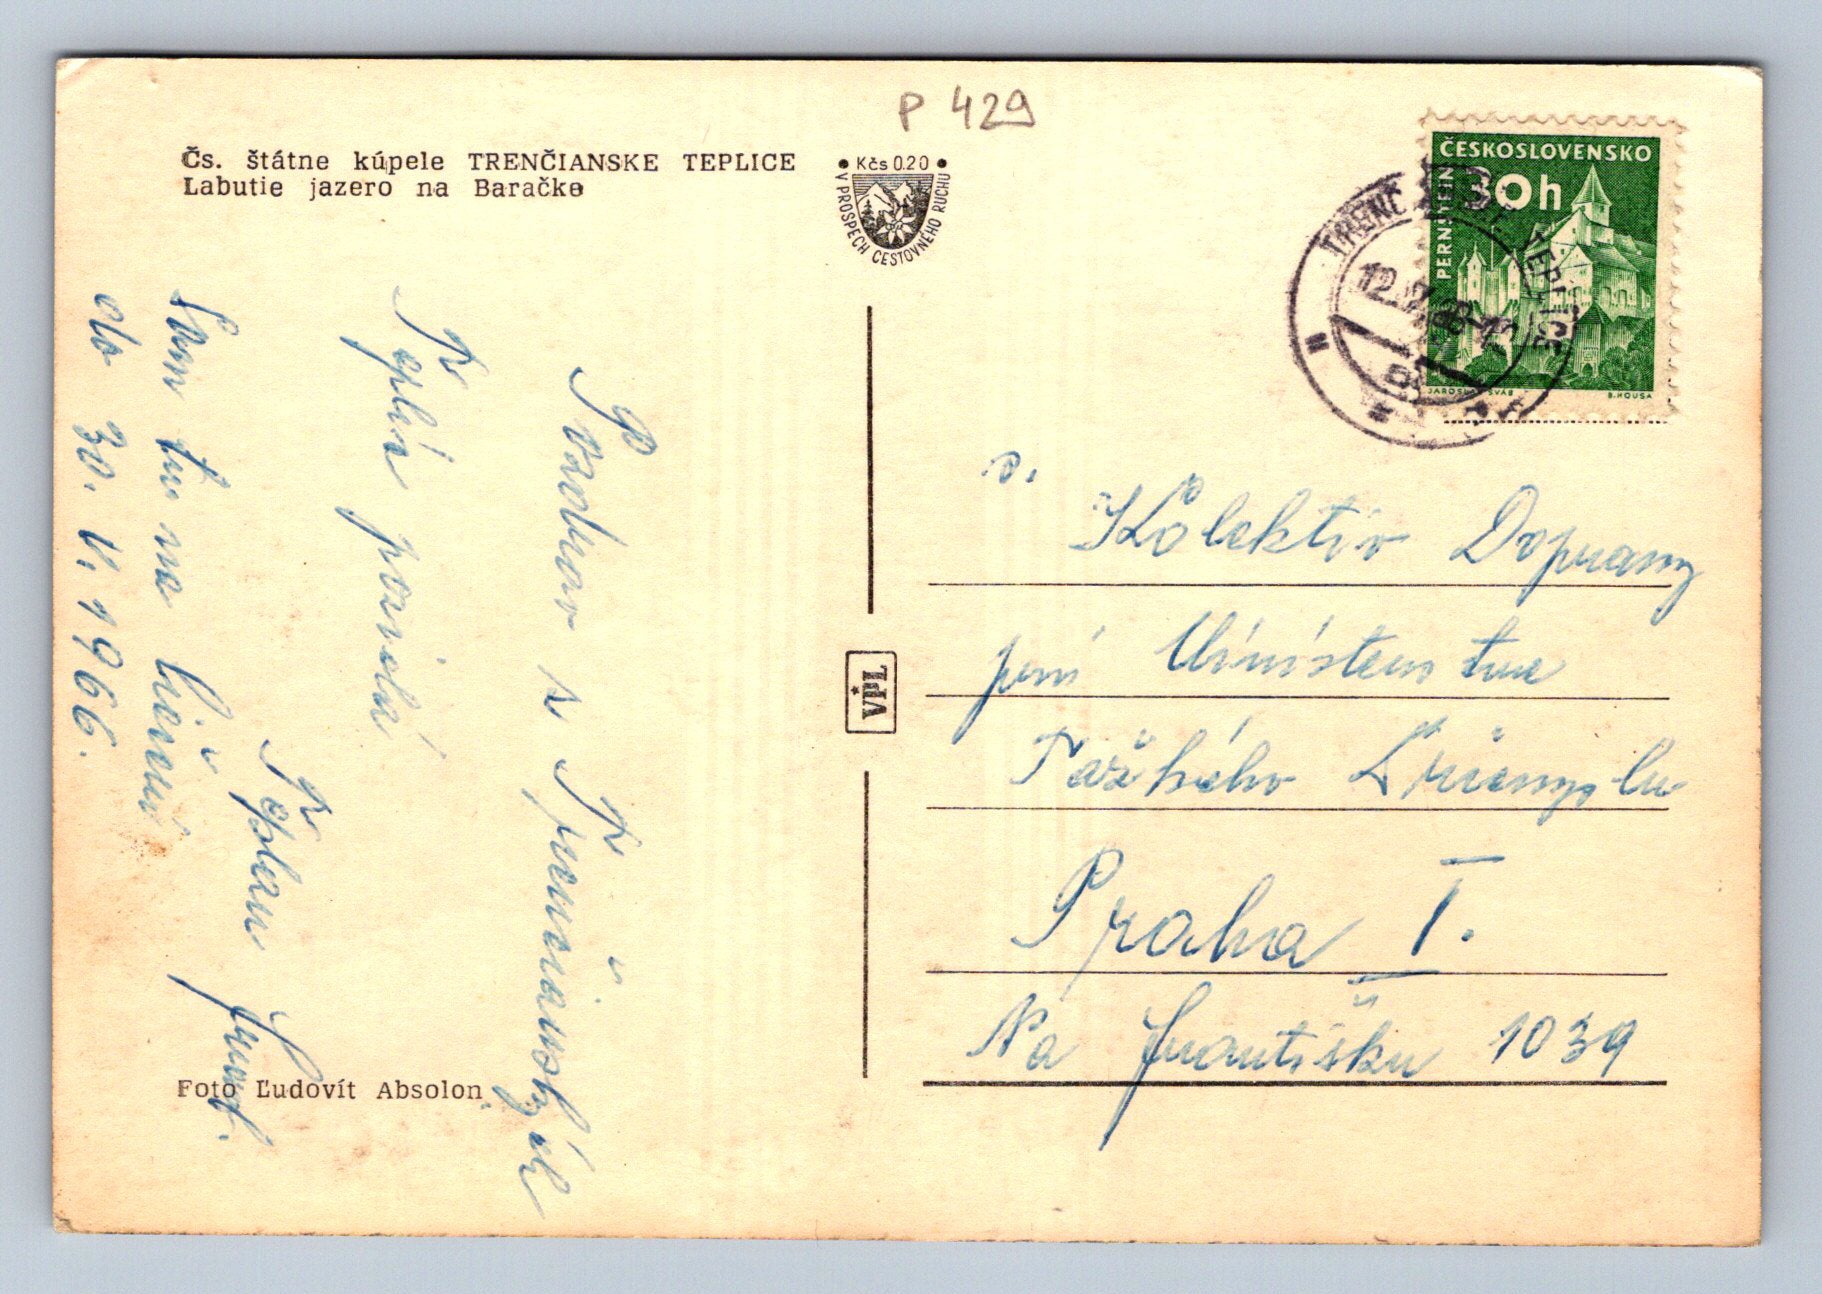 P 429
Čs. štátne kúpele TRENČIANSKE TEPLICE
Labutie jazero na Baračke
Kčs 0.20
V PROSPECH CESTOVNÉHO RUCHU
ČESKOSLOVENSKO
30h
PERNŠTEJN
JAROSLAV ŠVÁB
B. HOUSA
TRENČ TEPLICE
12.
Pozdrav z Trenčianských
Teplíc posiela
Som tu na liečení
do 30. V. 1966.
VPL
s.
Kolektiv Dopravy
pri Ministerstve
Ťažkého Průmyslu
Praha I.
Na Františku 1039
Foto Ľudovít Absolon